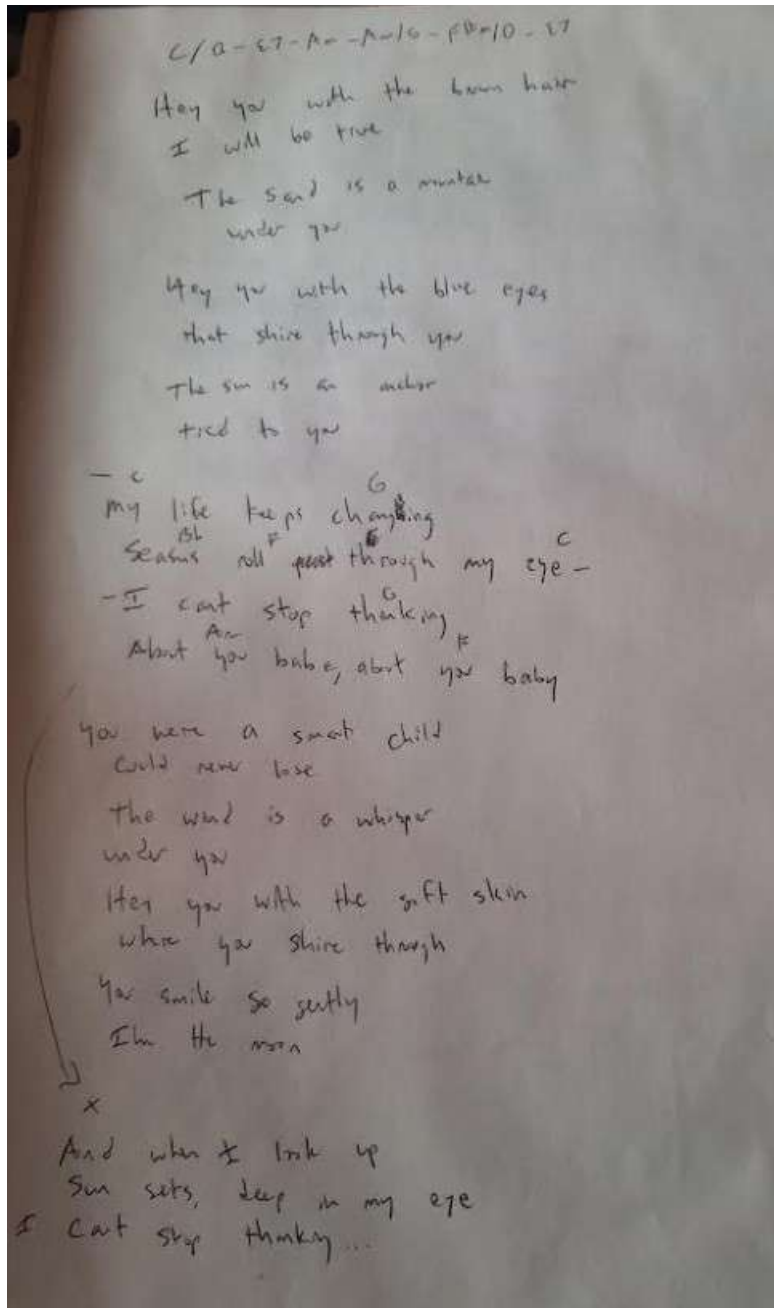 C/G - E7 - Am - Am/G - F#m/D - E7
Hey you with the brown hair
I will be true
The sand is a mountain
under you
Hey you with the blue eyes
that shine through you
The sun is an anchor
tied to you
- C G
My life keeps changing
Bb F G C
Seasons roll past through my eye -
G
- I cant stop thinking
Am F
About you babe, about you baby
You were a smart child
Could never lose
The wind is a whisper
under you
Hey you with the soft skin
where you shine through
You smile so gently
I'm the moon
x
And when I look up
Sun sets, deep in my eye
I Cant stop thinking...